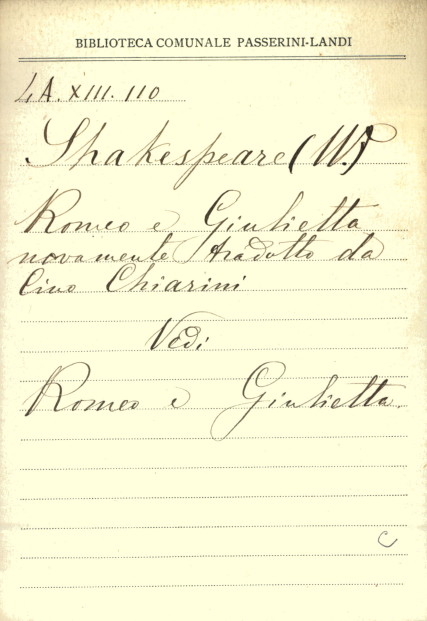 BIBLIOTECA COMUNALE PASSERINI-LANDI
LA. XIII. 110
Shakespeare (W.)
Romeo e Giulietta
novamente tradotto da
Cino Chiarini
Vedi
Romeo e Giulietta.
C